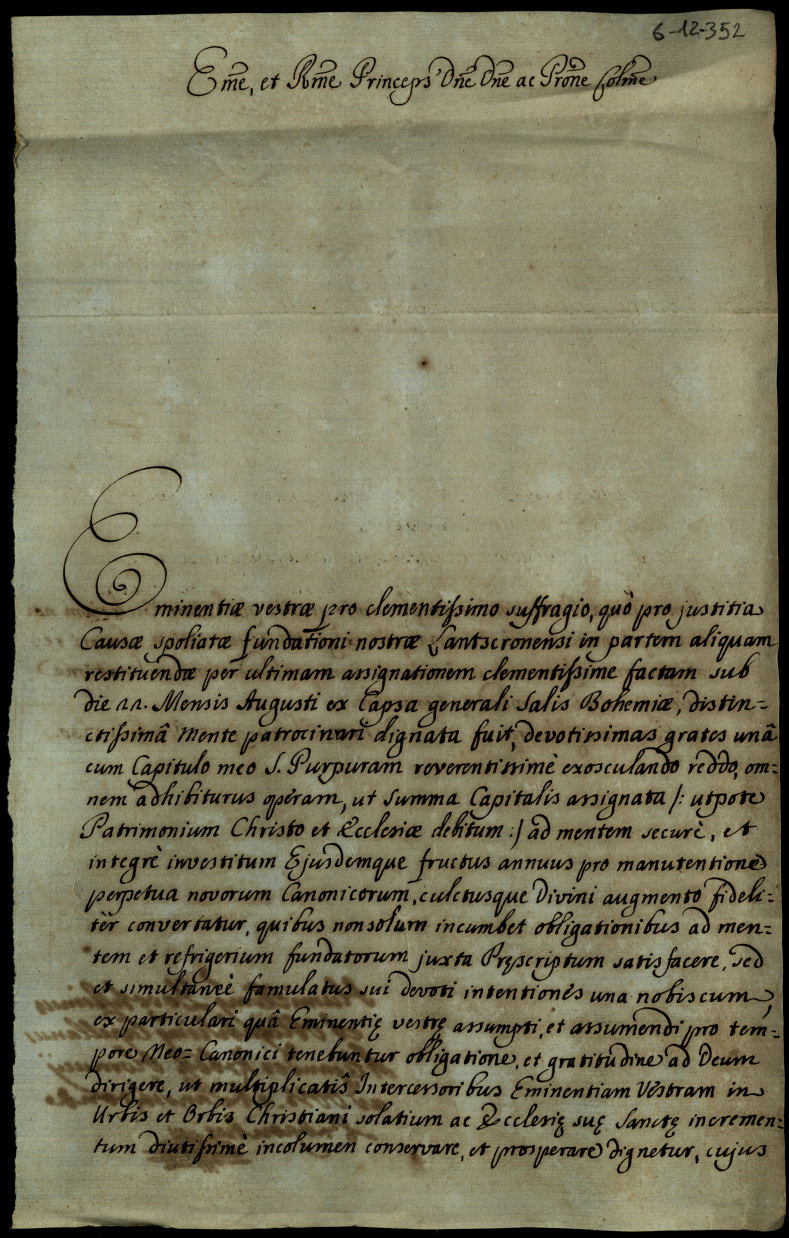 6-12-352
Eme, et Rme Princeps Dne Dne ac Prone Colme
Eminentiæ vestræ pro clementissimo suffragio, quô pro justitia
Causæ spoliatæ fundationi nostræ Lantscronensi in partem aliquam
restituendæ per ultimam assignationem clementissime factam sub
die 22. Mensis Augusti ex Capsa generali Salis Bohemiæ, distin=
ctissimâ Mente patrocinari dignata fuit, devotissimas grates unâ
cum Capitulo meo S. Purpuram reverentissimè exosculando reddo, om=
nem adhibiturus operam, ut Summa Capitalis assignata /: utpote
Patrimonium Christo et Ecclesiæ debitum :/ ad mentem securè, et
integrè investitum Ejusdemque fructus annuus pro manutentione
perpetua novorum Canonicorum, cultusque Divini augmento fideli=
tèr convertatur, quibus non solum incumbet obligationibus ad men=
tem et refrigerium fundatorum juxta Pręscriptum satisfacere, sed
et simultaneè famulatus sui devoti intentiones una nobiscum,
ex particulari quâ Eminentię vestrę assumpti, et assumendi pro tem=
pore Neo= Canonici tenebuntur obligatione, et gratitudine ad Deum
dirigere, ut multiplicatis Intercessoribus Eminentiam Vestram in
Urbis et Orbis Christiani solatium ac Ecclesię suę Sanctę incremen=
tum diutissimè incolumen conservare, et prosperare dignetur, cujus